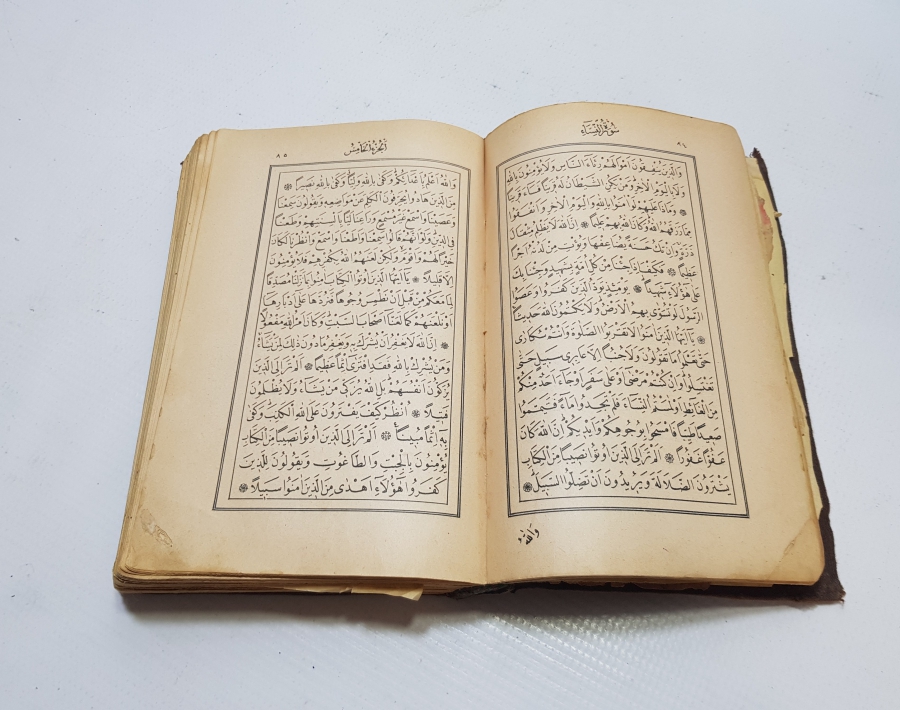 سُورَةُ النِّسَاءِ
٨٤
وَالَّذِينَ يُنْفِقُونَ اَمْوَالَهُمْ رِئَاءَ النَّاسِ وَلَا يُؤْمِنُونَ بِاللّٰهِ
وَلَا بِالْيَوْمِ الْاٰخِرِ وَمَنْ يَكُنِ الشَّيْطَانُ لَهُ قَرِينًا فَسَاءَ قَرِينًا
۞ وَمَاذَا عَلَيْهِمْ لَوْ اٰمَنُوا بِاللّٰهِ وَالْيَوْمِ الْاٰخِرِ وَاَنْفَقُوا
مِمَّا رَزَقَهُمُ اللّٰهُ وَكَانَ اللّٰهُ بِهِمْ عَلِيمًا ۞ اِنَّ اللّٰهَ لَا يَظْلِمُ مِثْقَالَ
ذَرَّةٍ وَاِنْ تَكُ حَسَنَةً يُضَاعِفْهَا وَيُؤْتِ مِنْ لَدُنْهُ اَجْرًا
عَظِيمًا ۞ فَكَيْفَ اِذَا جِئْنَا مِنْ كُلِّ اُمَّةٍ بِشَهِيدٍ وَجِئْنَا بِكَ
عَلٰى هٰؤُلَاءِ شَهِيدًا ۞ يَوْمَئِذٍ يَوَدُّ الَّذِينَ كَفَرُوا وَعَصَوُا
الرَّسُولَ لَوْ تُسَوّٰى بِهِمُ الْاَرْضُ وَلَا يَكْتُمُونَ اللّٰهَ حَدِيثًا
۞ يَا اَيُّهَا الَّذِينَ اٰمَنُوا لَا تَقْرَبُوا الصَّلٰوةَ وَاَنْتُمْ سُكَارٰى
حَتّٰى تَعْلَمُوا مَا تَقُولُونَ وَلَا جُنُبًا اِلَّا عَابِرِى سَبِيلٍ حَتّٰى
تَغْتَسِلُوا وَاِنْ كُنْتُمْ مَرْضٰى اَوْ عَلٰى سَفَرٍ اَوْ جَاءَ اَحَدٌ مِنْكُمْ
مِنَ الْغَائِطِ اَوْ لٰمَسْتُمُ النِّسَاءَ فَلَمْ تَجِدُوا مَاءً فَتَيَمَّمُوا
صَعِيدًا طَيِّبًا فَامْسَحُوا بِوُجُوهِكُمْ وَاَيْدِيكُمْ اِنَّ اللّٰهَ كَانَ
عَفُوًّا غَفُورًا ۞ اَلَمْ تَرَ اِلَى الَّذِينَ اُوتُوا نَصِيبًا مِنَ الْكِتَابِ
يَشْتَرُونَ الضَّلَالَةَ وَيُرِيدُونَ اَنْ تَضِلُّوا السَّبِيلَ ۞
وَاللّٰهُ
اَلْجُزْءُ الْخَامِسُ
٨٥
وَاللّٰهُ اَعْلَمُ بِاَعْدَائِكُمْ وَكَفٰى بِاللّٰهِ وَلِيًّا وَكَفٰى بِاللّٰهِ نَصِيرًا ۞
مِنَ الَّذِينَ هَادُوا يُحَرِّفُونَ الْكَلِمَ عَنْ مَوَاضِعِهِ وَيَقُولُونَ سَمِعْنَا
وَعَصَيْنَا وَاسْمَعْ غَيْرَ مُسْمَعٍ وَرَاعِنَا لَيًّا بِاَلْسِنَتِهِمْ وَطَعْنًا
فِى الدِّينِ وَلَوْ اَنَّهُمْ قَالُوا سَمِعْنَا وَاَطَعْنَا وَاسْمَعْ وَانْظُرْنَا لَكَانَ
خَيْرًا لَهُمْ وَاَقْوَمَ وَلٰكِنْ لَعَنَهُمُ اللّٰهُ بِكُفْرِهِمْ فَلَا يُؤْمِنُونَ
اِلَّا قَلِيلًا ۞ يَا اَيُّهَا الَّذِينَ اُوتُوا الْكِتَابَ اٰمِنُوا بِمَا نَزَّلْنَا مُصَدِّقًا
لِمَا مَعَكُمْ مِنْ قَبْلِ اَنْ نَطْمِسَ وُجُوهًا فَنَرُدَّهَا عَلٰى اَدْبَارِهَا
اَوْ نَلْعَنَهُمْ كَمَا لَعَنَّا اَصْحَابَ السَّبْتِ وَكَانَ اَمْرُ اللّٰهِ مَفْعُولًا
۞ اِنَّ اللّٰهَ لَا يَغْفِرُ اَنْ يُشْرَكَ بِهِ وَيَغْفِرُ مَا دُونَ ذٰلِكَ لِمَنْ يَشَاءُ
وَمَنْ يُشْرِكْ بِاللّٰهِ فَقَدِ افْتَرٰى اِثْمًا عَظِيمًا ۞ اَلَمْ تَرَ اِلَى الَّذِينَ
يُزَكُّونَ اَنْفُسَهُمْ بَلِ اللّٰهُ يُزَكِّى مَنْ يَشَاءُ وَلَا يُظْلَمُونَ
فَتِيلًا ۞ اُنْظُرْ كَيْفَ يَفْتَرُونَ عَلَى اللّٰهِ الْكَذِبَ وَكَفٰى
بِهِ اِثْمًا مُبِينًا ۞ اَلَمْ تَرَ اِلَى الَّذِينَ اُوتُوا نَصِيبًا مِنَ الْكِتَابِ
يُؤْمِنُونَ بِالْجِبْتِ وَالطَّاغُوتِ وَيَقُولُونَ لِلَّذِينَ
كَفَرُوا هٰؤُلَاءِ اَهْدٰى مِنَ الَّذِينَ اٰمَنُوا سَبِيلًا ۞